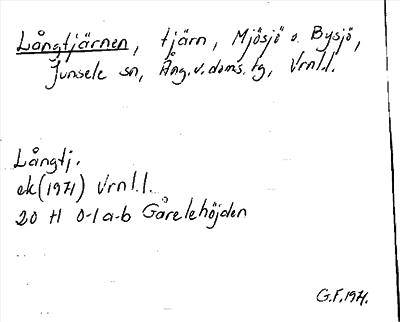 Långtjärnen, tjärn, Mjösjö o. Bysjö,
Junsele sn, Ång.v.doms.sg, Vrnl.l.
Långtj.
ek(1971) Vrnl.l.
20 H 0-1 a-b Gårelehöjden
G.F.1971.